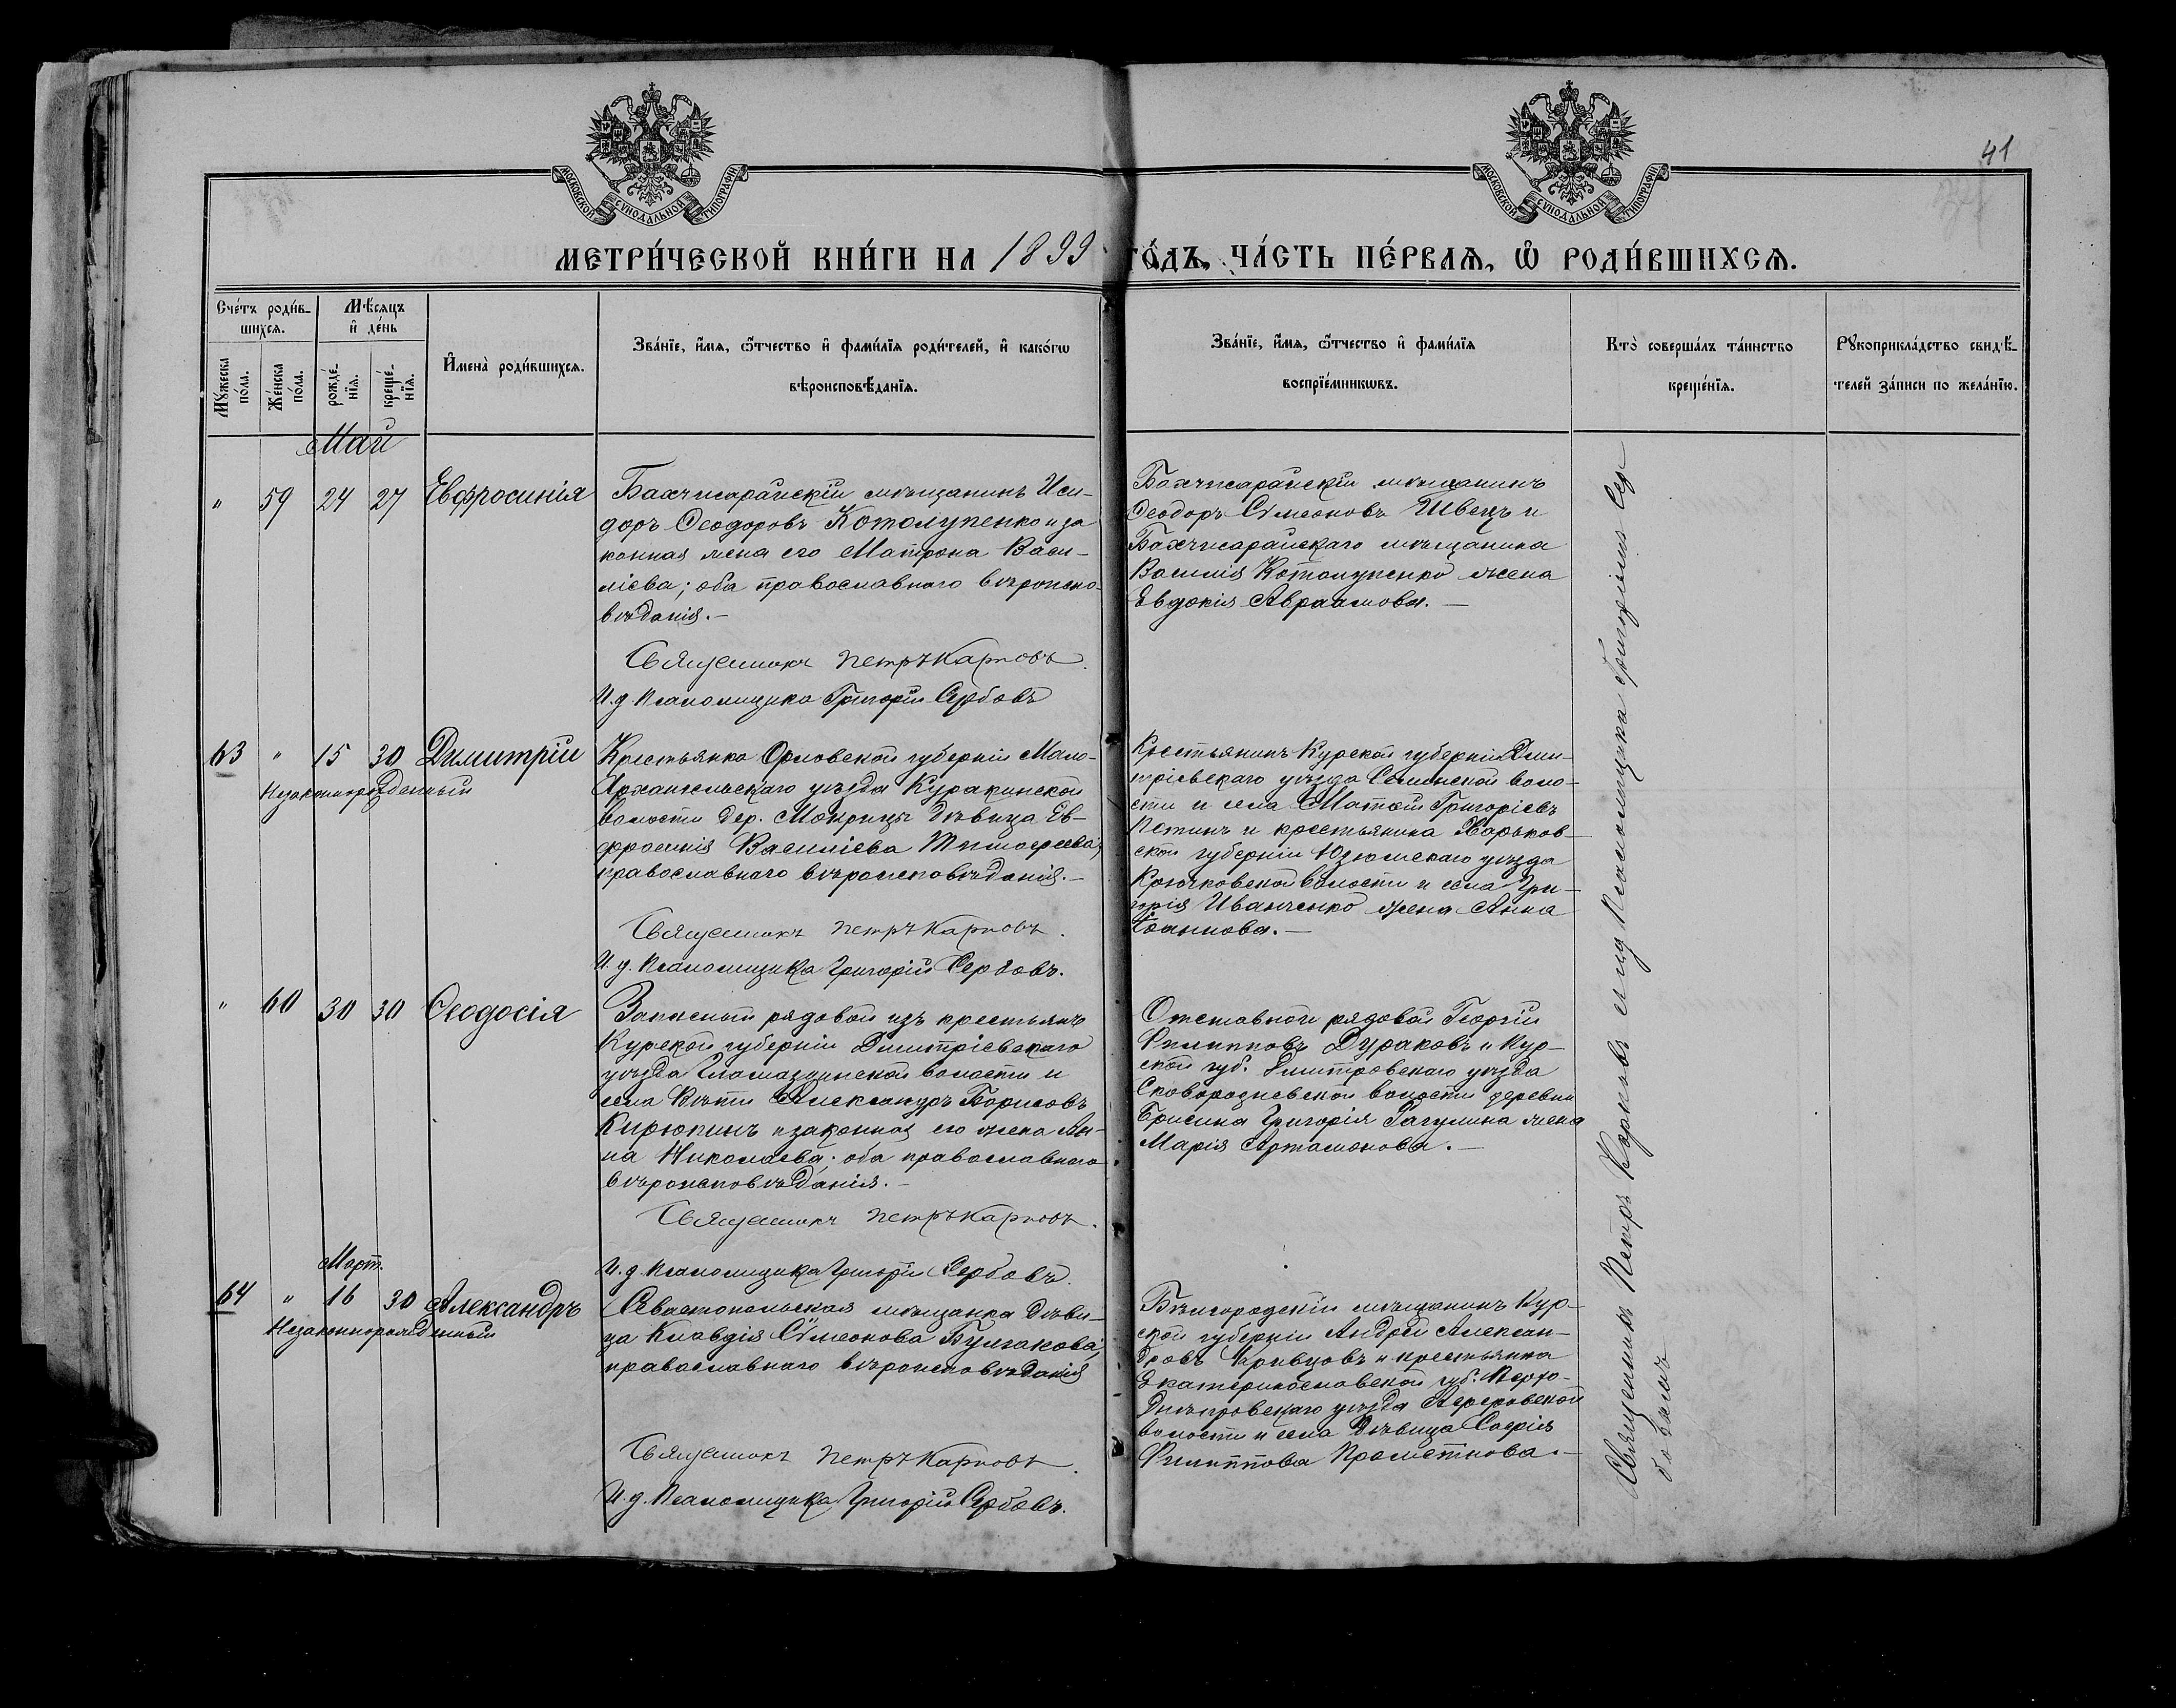 МОСКОВСКОЙ СѴНОДАЛЬНОЙ ТИПОГРАФІИ
МОСКОВСКОЙ СѴНОДАЛЬНОЙ ТИПОГРАФІИ
41
МЕТРИ́ЧЕСКОЙ КНИ́ГИ НА 1899 ГО́ДЪ, ЧА́СТЬ ПЕ́РВАѦ, Ѽ РОДИ́ВШИХСѦ.
Сче́тъ роди́в-
шихсѧ.
Мѣ́сѧцъ
и҆ де́нь
Мꙋ́жеска
по́ла.
Же́нска
по́ла.
рожде́-
нїѧ.
креще́-
нїѧ.
И҆мена̀ роди́вшихсѧ.
Зва́нїе, и҆́мѧ, ѻ҆́тчество и҆ фами́лїѧ роди́телей, и҆ како́гѡ
вѣроисповѣ́данїѧ.
Зва́нїе, и҆́мѧ, ѻ҆́тчество и҆ фами́лїѧ
воспрїе́мникѡвъ.
Кто̀ соверша́лъ та́инство
креще́нїѧ.
Рꙋкоприкла́дство свидѣ́-
телей за́писи по жела́нїю.
Май
" 59 24 27 Евфросинія
Бахчисарайскій мѣщанинъ Иси-
доръ Ѳеодоровъ Котолупенко и за
конная жена его Матрона Васи-
ліева; оба православнаго вѣроиспо-
вѣданія.-
Священникъ Петръ Карповъ.
И.д. Псаломщика Григорій Сербовъ
Бахчисарайскій мѣщанинъ
Ѳеодоръ Сѵмеоновъ Швецъ и
Бахчисарайскаго мѣщанина
Василія Котолупенко жена
Евдокія Авраамова.-
63 " 15 30 Димитрій
Незаконнорожденный
Крестьянка Орловской губерніи Мало-
Архангельскаго уѣзда Куракинской
волости дер. Мокрицы дѣвица Ев-
фросинія Василіева Тимоѳеева;
православнаго вѣроисповѣданія.-
Священникъ Петръ Карповъ.
И.д. Псаломщика Григорій Сербовъ.
Крестьянинъ Курской губерніи Дми-
тріевскаго уѣзда воло-
сти и села Григоріевъ
Петинъ и крестьянина Харьков-
ской губерніи Изюмскаго уѣзда
Крючковской волости и села Гри-
горія Иванченко жена Анна
Іоаннова.-
" 60 30 30 Ѳеодосія
Запасный рядовой изъ крестьянъ
Курской губерніи Дмитріевскаго
уѣзда Гламаздинской волости и
села Александръ Борисовъ
Кирюпинъ и законная его жена Ан-
на Николаева; оба православнаго
вѣроисповѣданія.-
Священникъ Петръ Карповъ.
И.д. Псаломщика Григорій Сербовъ.
Отставной рядовой Георгій
Филипповъ Дураковъ и Кур-
ской губ. Дмитровскаго уѣзда
волости деревни
Григорія жена
Марія Артамонова.-
Март.
64 " 16 30 Александръ
Незаконнорожденный
Севастопольская мѣщанка дѣви-
ца Клавдія Сѵмеонова Булгакова;
православнаго вѣроисповѣданія
Священникъ Петръ Карповъ.
И.д. Псаломщика Григорій Сербовъ.
Бѣлгородскій мѣщанинъ Кур-
ской губерніи Андрей Алексан-
дровъ Кривцовъ и крестьянка
Екатеринославской губ. Верхо-
Днѣпровскаго уѣзда
волости и села дѣвица Софія
Филиппова
Священникъ Петръ Карповъ съ и.д. Псаломщика Григоріемъ Сер-
бовымъ